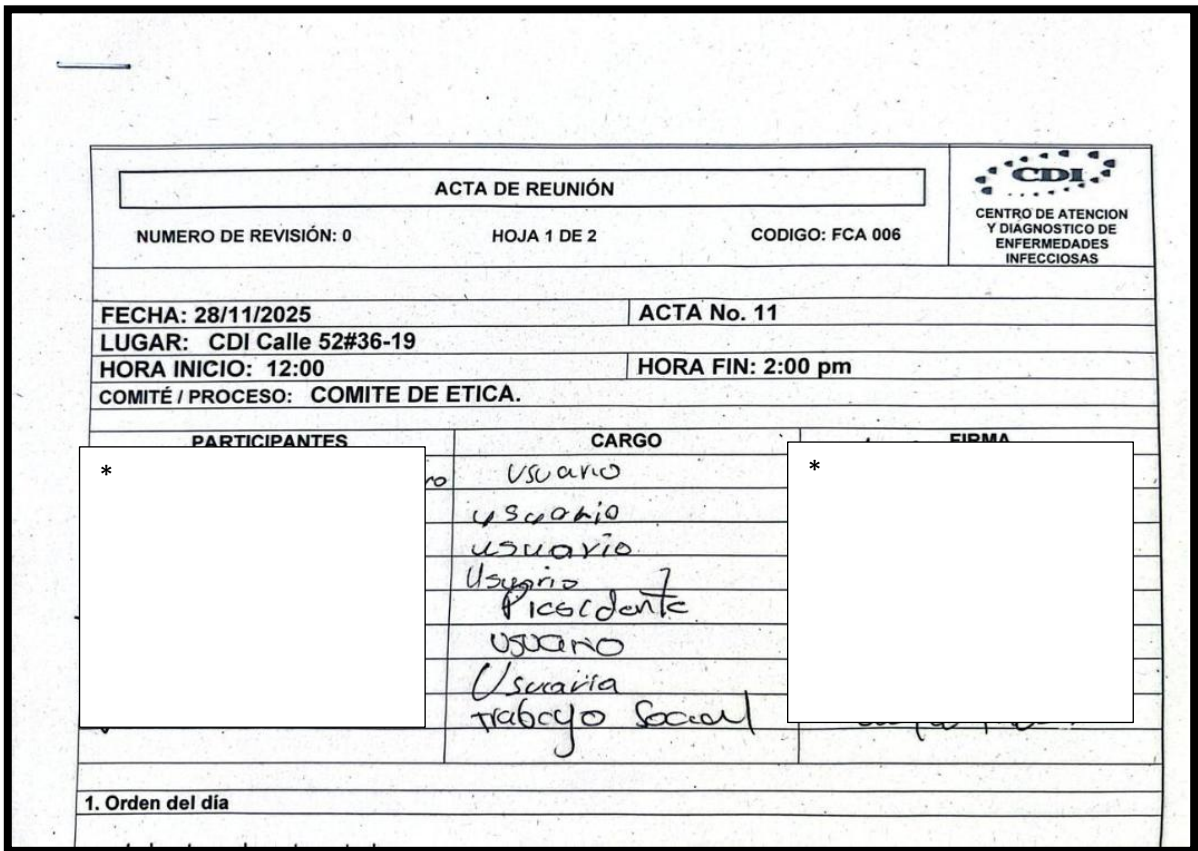 ACTA DE REUNIÓN
NUMERO DE REVISIÓN: 0 HOJA 1 DE 2 CODIGO: FCA 006
CDI
CENTRO DE ATENCION
Y DIAGNOSTICO DE
ENFERMEDADES
INFECCIOSAS
FECHA: 28/11/2025 ACTA No. 11
LUGAR: CDI Calle 52#36-19
HORA INICIO: 12:00 HORA FIN: 2:00 pm
COMITÉ / PROCESO: COMITE DE ETICA.
PARTICIPANTES CARGO FIRMA
* usuario *
usuario
usuario
Usuario
Presidente
usuario
Usuaria
trabajo Social
1. Orden del día